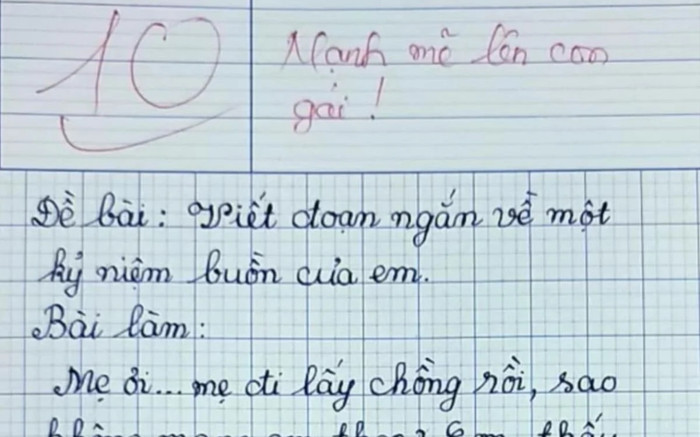 10
Mạnh mẽ lên con
gái!
Đề bài: Viết đoạn ngắn về một
kỷ niệm buồn của em.
Bài làm:
Mẹ ơi... mẹ đi lấy chồng rồi, sao